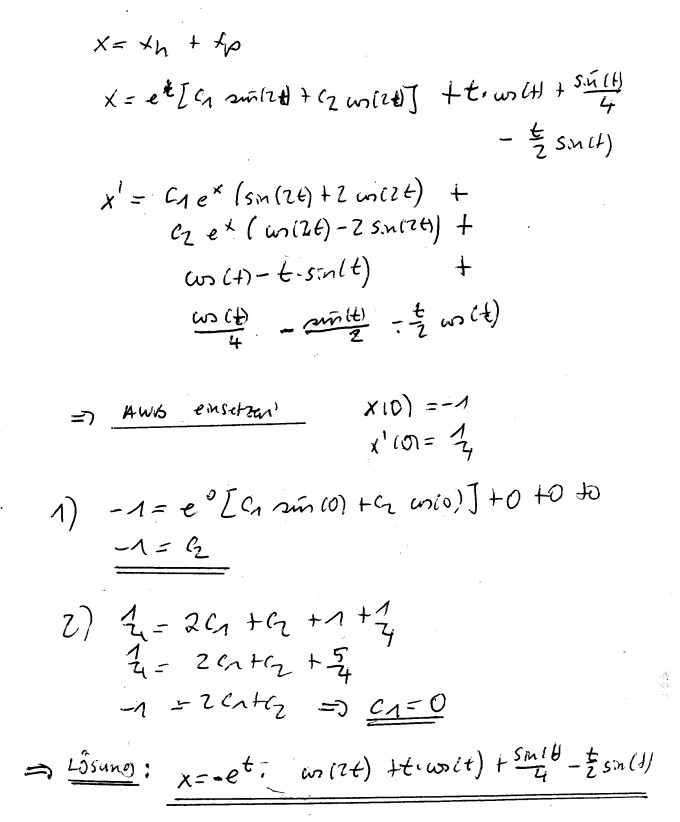 x = x_h + x_p
x = e^t [c_1 sin(2t) + c_2 cos(2t)] + t · cos(t) + sin(t)/4
- t/2 sin(t)
x' = c_1 e^x (sin(2t) + 2 cos(2t) +
c_2 e^x (cos(2t) - 2 sin(2t)) +
cos(t) - t · sin(t) +
cos(t)/4 - sin(t)/2 - t/2 cos(t)
=> AWB einsetzen x(0) = -1
x'(0) = 1/4
1) -1 = e^0 [c_1 sin(0) + c_2 cos(0)] + 0 + 0 + 0
-1 = c_2
2) 1/4 = 2c_1 + c_2 + 1 + 1/4
1/4 = 2c_1 + c_2 + 5/4
-1 = 2c_1 + c_2 => c_1 = 0
=> Lösung: x = -e^t · cos(2t) + t · cos(t) + sin(t)/4 - t/2 sin(t)